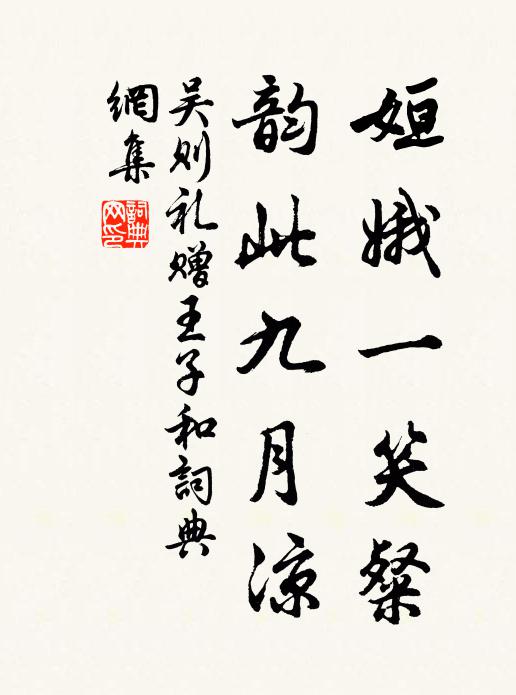 姮娥一笑粲
韵此九月凉
吴则礼赠王子和詞典
網集
詞典网印